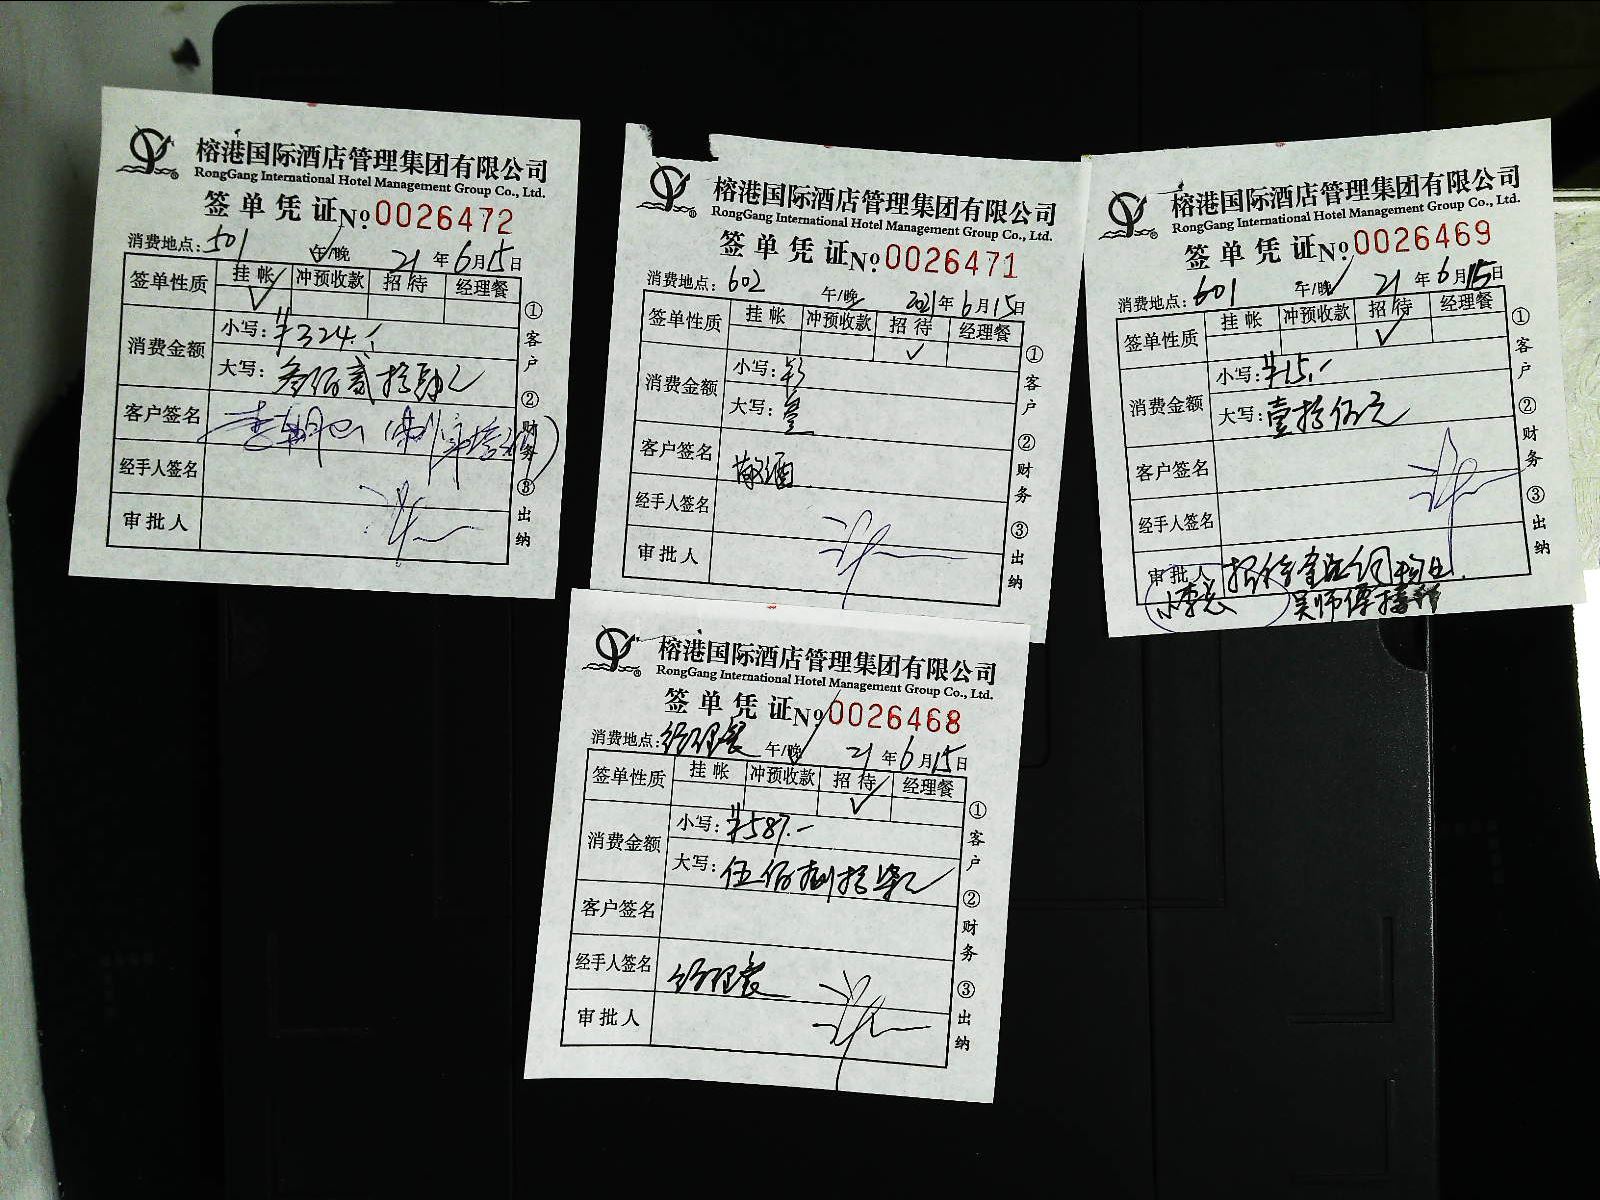 榕港国际酒店管理集团有限公司
RongGang International Hotel Management Group Co., Ltd.
签单凭证№0026472
消费地点：501 午/晚 21年6月15日
签单性质 挂帐 冲预收款 招待 经理餐
消费金额
小写：¥324.-
大写：叁佰贰拾肆元
客户签名
经手人签名
审批人
①客户 ②财务 ③出纳
榕港国际酒店管理集团有限公司
RongGang International Hotel Management Group Co., Ltd.
签单凭证№0026471
消费地点：602 午/晚 2021年6月15日
签单性质 挂帐 冲预收款 招待 经理餐
消费金额
小写：
大写：
客户签名 敬酒
经手人签名
审批人
①客户 ②财务 ③出纳
榕港国际酒店管理集团有限公司
RongGang International Hotel Management Group Co., Ltd.
签单凭证№0026469
消费地点：601 午/晚 21年6月15日
签单性质 挂帐 冲预收款 招待 经理餐
消费金额
小写：¥15.-
大写：壹拾伍元
客户签名
经手人签名
审批人 招待
吴师傅
①客户 ②财务 ③出纳
榕港国际酒店管理集团有限公司
RongGang International Hotel Management Group Co., Ltd.
签单凭证№0026468
消费地点：经理餐 午/晚 21年6月15日
签单性质 挂帐 冲预收款 招待 经理餐
消费金额
小写：¥587.-
大写：伍佰捌拾柒元
客户签名
经手人签名 经理餐
审批人
①客户 ②财务 ③出纳